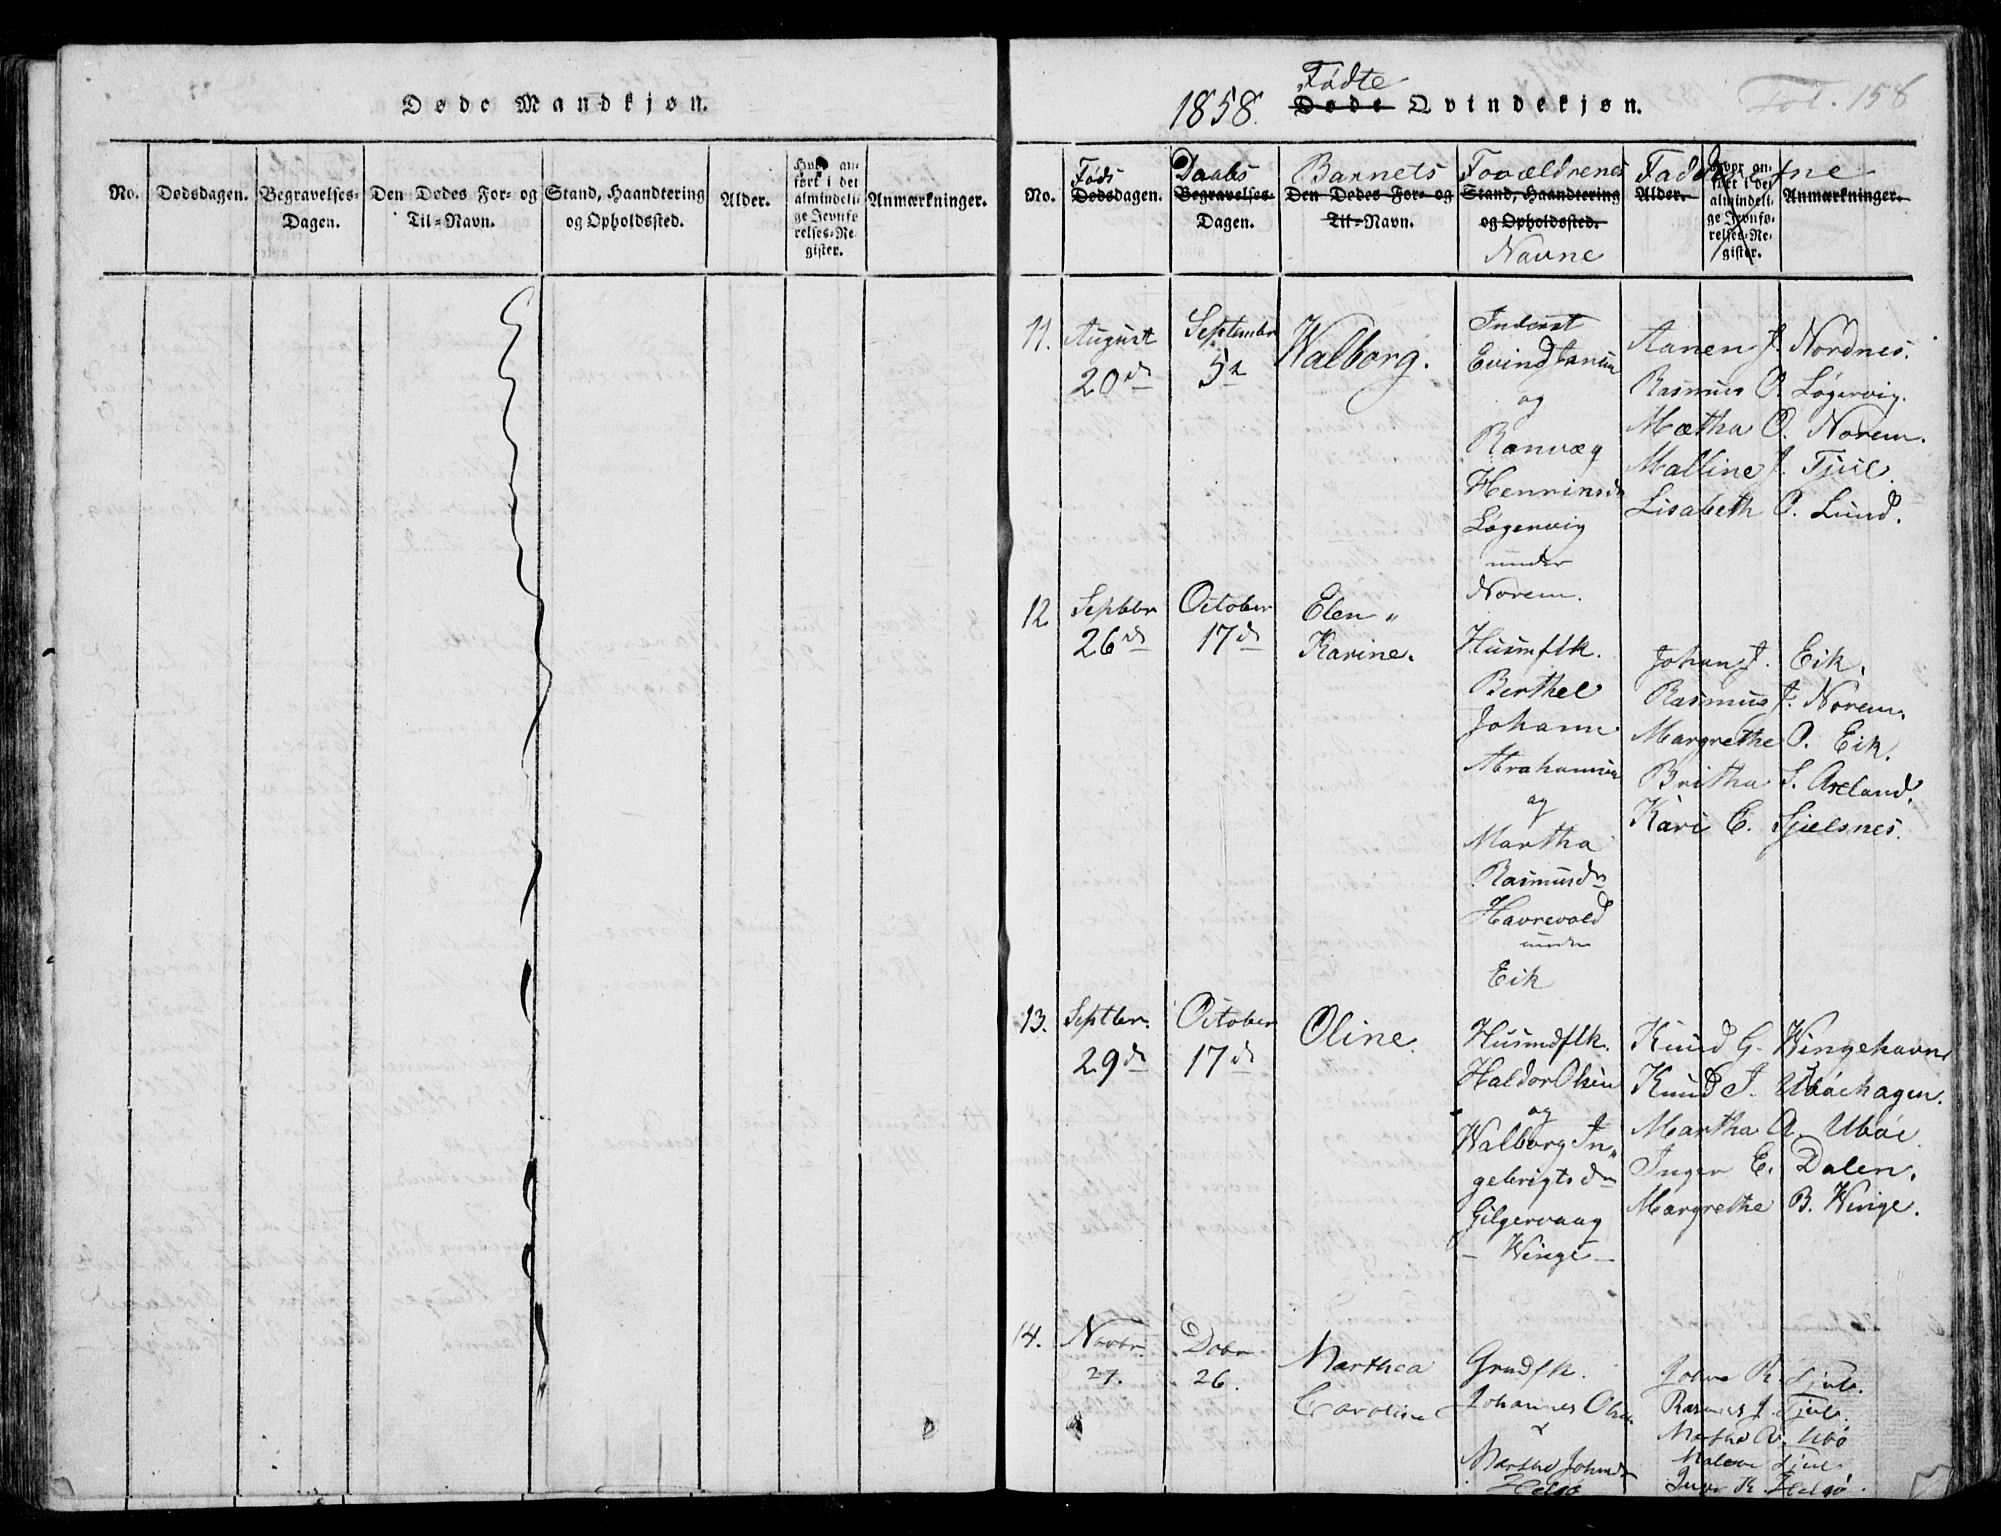 Døde Mandkjøn.
No.
Dødsdagen.
Begravelses-
Dagen.
Den Dødes For- og
Til-Navn.
Stand, Haandtering
og Opholdssted.
Alder.
Hvor an-
ført i det
almindeli-
ge Jevnfø-
relses-Re-
gister.
Anmærkninger.
Fol. 158
Fødte
1858. Døde Qvindekjøn.
No.
Føds
Dødsdagen.
Daabs
Begravelses-
Dagen.
Barnets
Den Dødes For- og
Til-Navn.
Forældrenes
Stand, Haandtering
og Opholdssted.
Navne
Faddernes
Alder.
Hvor an-
ført i det
almindeli-
ge Jevnfø-
relses-Re-
gister.
Anmærkninger.
11.
August
20de
September
5te
Walborg.
Inderst
Evind
og
Ranvæg
Henriksd
Løgervig
under
Norem.
Aanen J. Nordnes.
Rasmus O. Løgervig.
Mætha O. Norem.
Malline J. Tjul.
Lisabeth O. Lund.
12.
Septbr
26de
October
17de
Elen
Karine.
Husmflk.
Berthel
Johann
Abrahamsen
og
Martha
Rasmusdr
Havrevold
under
Eik
Johan J. Eik.
Rasmus J. Norem.
Margrethe O. Eik.
Britha S. Axeland.
Kari E. Sjelsnes.
13.
Septbr.
29de
October
17de
Oline.
Husmdflk.
Haldor Olsen
og
Walborg In„
gebrigtsdr
Gilgervaag
– Winge –
Knud G. Wingehavn
Knud J. Ubøehagen.
Martha A. Ubøe.
Inger E. Dalen.
Margrethe B. Winge.
14.
Novbr.
27.
Decbr
26.
Marthea
Caroline
Grudflk.
Johannes Olsen
&
Martha Johnsdr
Helgø
Johan R. Tjul.
Rasmus J. Tjul.
Martha A. Ubø
Malene Tjul.
R. Helgø.